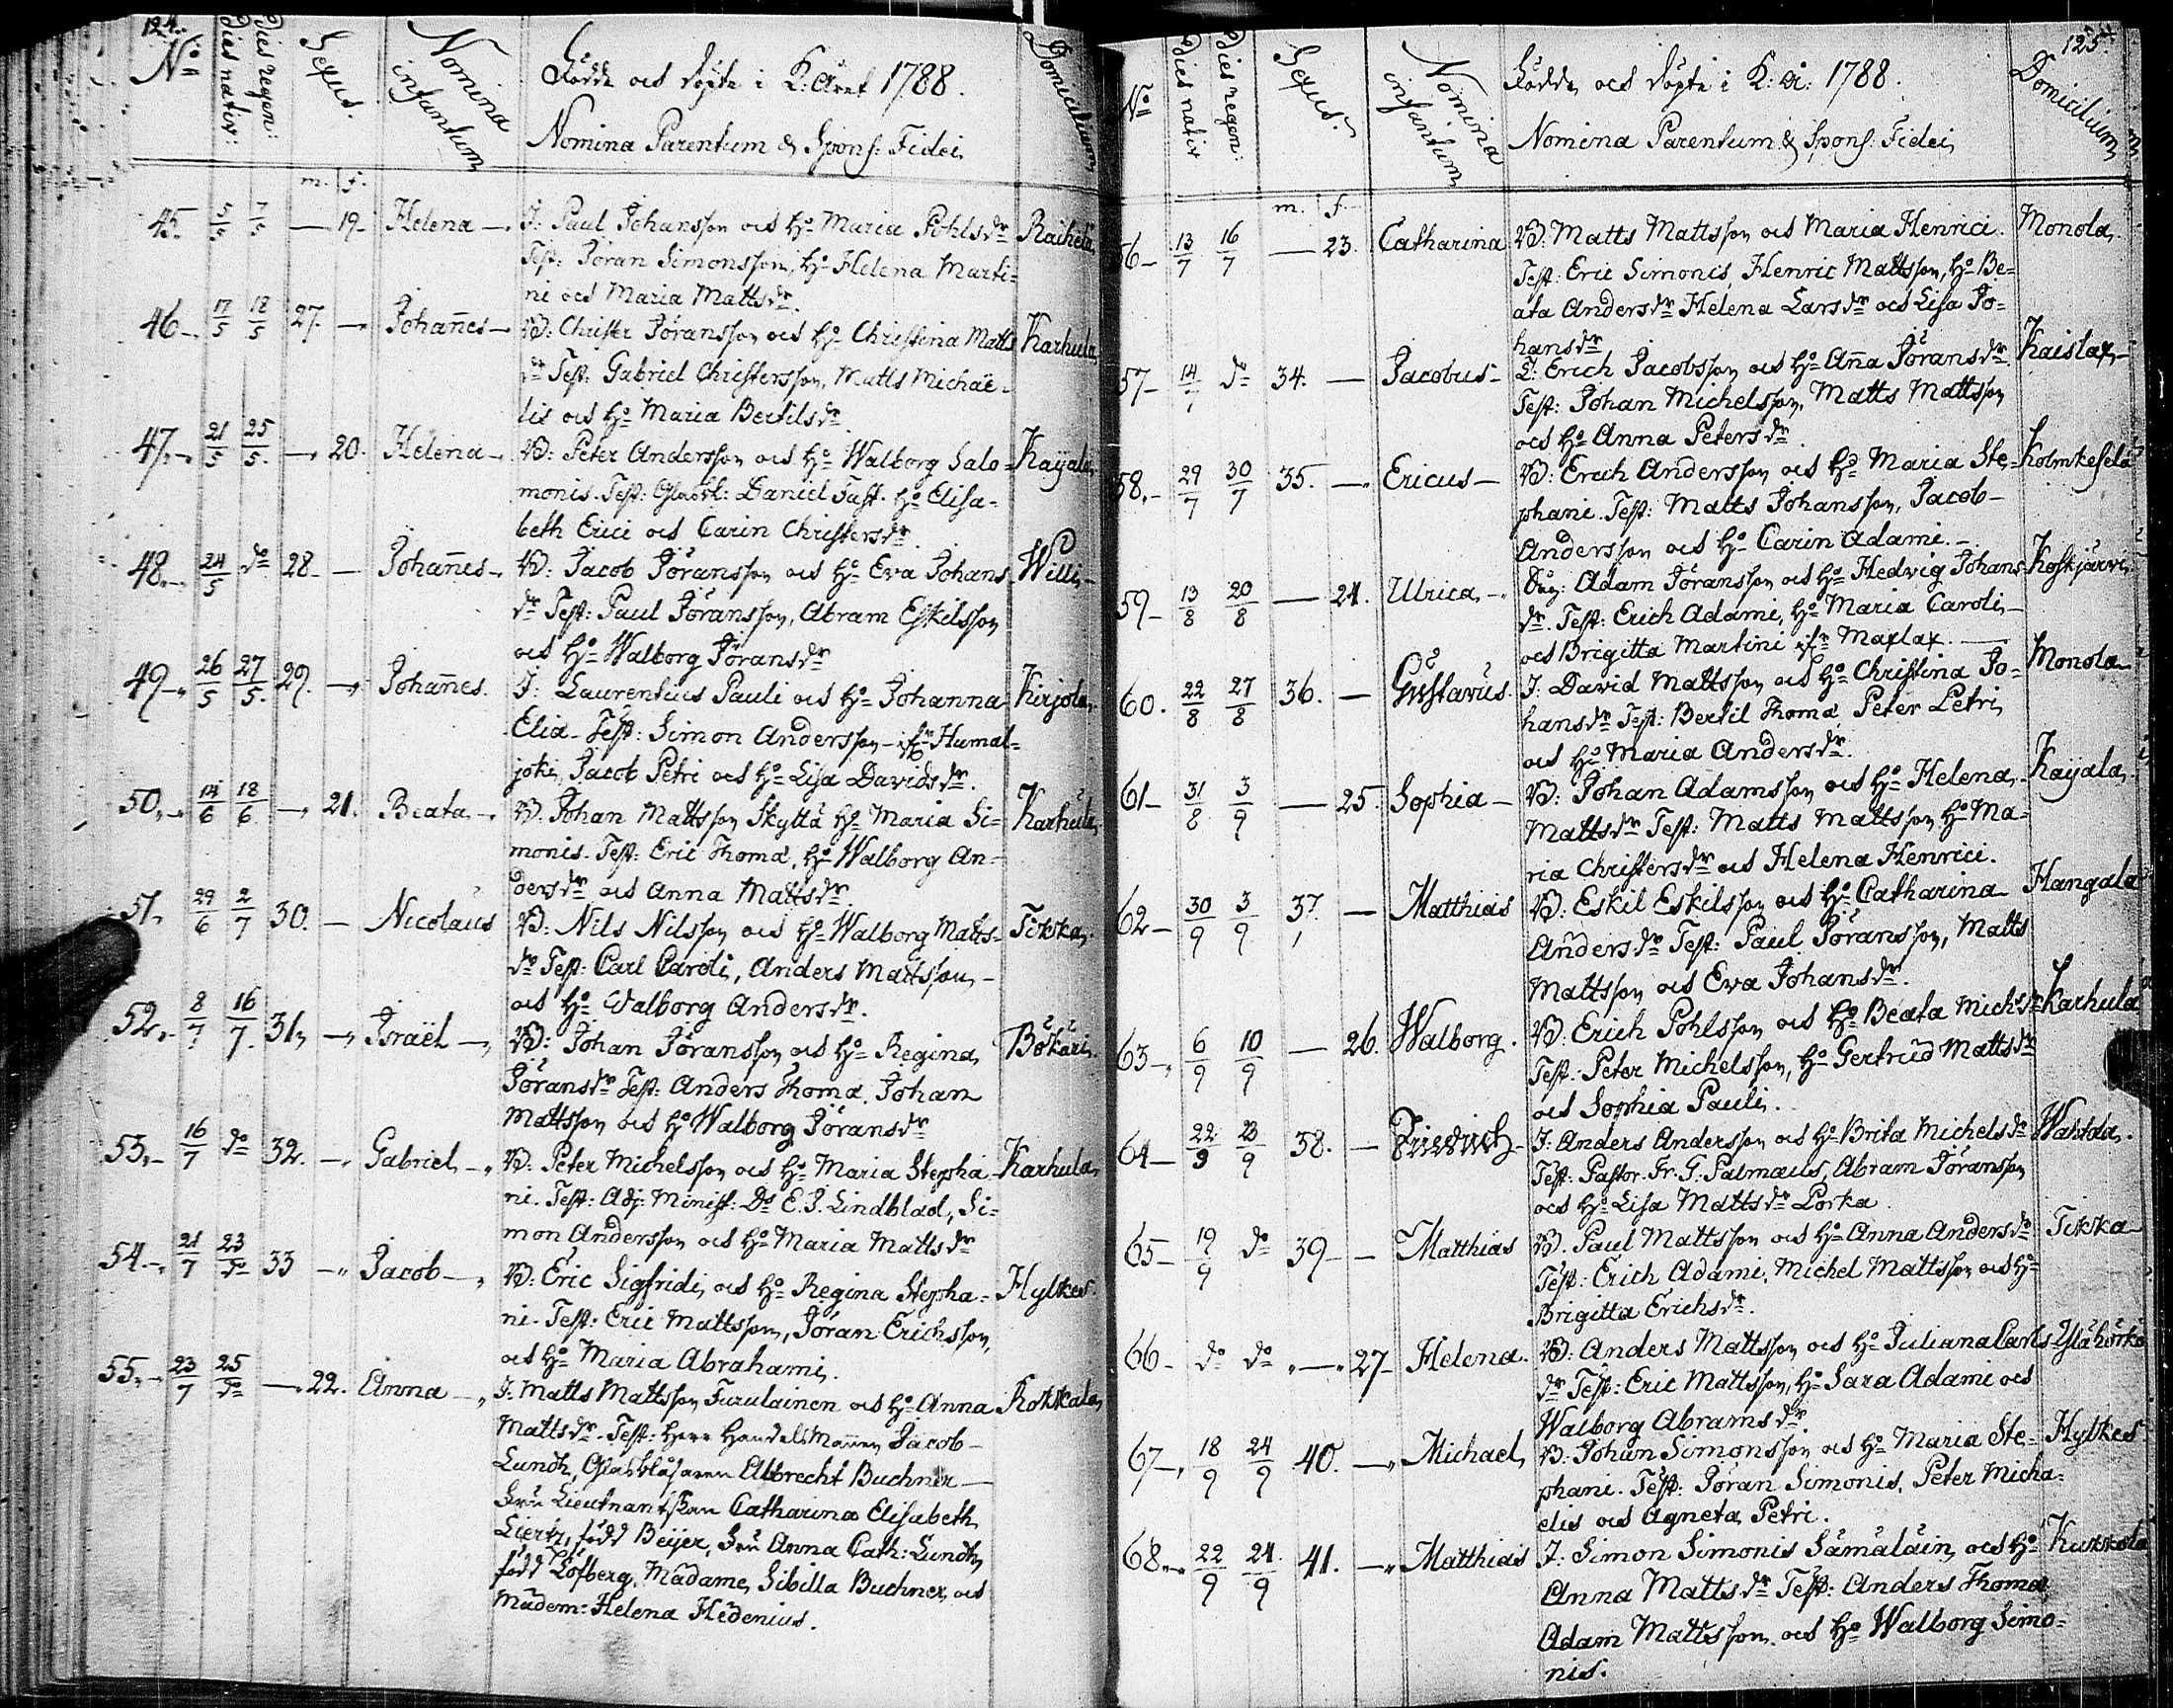 124.
No Dies nativ: Dies regen: Sexus. Nomina infantum Födde och döpte i K: Året 1788. Domicilium
Nomina Parentum & Spons: Fidei
m. f.
45. 5/5 7/5 — 19. Helena J: Paul Johansson och Ho Maria Pohlsdr Raihela
Test: Jöran Simonsson, Ho Helena Marti=
ni och Maria Mattsdr
46. 17/5 18/5 27. — Johañes B: Christer Jöransson och Ho Christina Matts Karhula
dr Test: Gabriel Christersson, Matts Michaë-
lis och Ho Maria Bertilsdr
47. 21/5 25/5 — 20. Helena B: Peter Andersson och Ho Walborg Salo= Kaÿala
monis. Test: Daniel Ho Elisa-
beth Erici och Carin Christersdr
48. 24/5 do 28. — Johañes B: Jacob Jöransson och Ho Eva Johans Willi
dr Test: Paul Jöransson, Abram Eskilsson
och Ho Walborg Jöransdr
49. 26/5 27/5 29. — Johañes. J: Laurentius Pauli och Ho Johanna Kirjola
Eliæ Test: Simon Andersson ifr Humal=
joki, Jacob Petri och Ho Lisa Davidsdr.
50. 14/6 18/6 — 21. Beata B. Johan Mattsson Skyttä Ho Maria Si= Karhula
monis. Test: Eric Thomæ, Ho Walborg An-
dersdr och Anna Mattsdr.
51. 29/6 2/7 30. — Nicolaus B: Nils Nilsson och Ho Walborg Matts- Tikka
dr Test: Carl Caroli, Anders Mattsson
och Ho Walborg Andersdr.
52. 8/7 16/7 31. — Israël B: Johan Jöransson och Ho Regina Bökäri
Jöransdr Test: Anders Thomæ, Johan
Mattsson och Ho Walborg Jöransdr
53. 16/7 do 32. — Gabriel B: Peter Michelsson och Ho Maria Stepha Karhula
ni. Test: Adj: Minist: Do E. J. Lindblad, Si=
mon Andersson och Ho Maria Mattsdr
54. 21/7 23/do 33 — Jacob B: Eric Sigfridi, och Ho Regina Stepha= Hylkes.
ni. Test: Eric Mattsson, Jöran Erichsson,
och Ho Maria Abrahami.
55. 23/7 25/do — 22. Anna J: Matts Mattsson Furulainen och Ho Anna Rokkala
Mattsdr. Test: Herr Handels Mannen Jacob
Lundh, Glasblåsaren Albrecht Buchner
Fru Lieutnantskan Catharina Elisabeth
Liertz, född Beijer, Fru Anna Cath: Lundh,
född Löfberg, Madame Sibilla Buchner, och
Madem: Helena Hedenius.
125
No Dies nativ Dies regen: Sexus. Nomina infantum Födde och döpte i K: Å: 1788. Domicilium
Nomina Parentum & Spons: Fidei
m. f.
56 13/7 16/7 — 23. Catharina B: Matts Mattsson och Maria Henrici. Monola
Test: Eric Simonis, Henric Mattsson, Ho Be=
ata Andersdr Helena Larsdr och Lisa Jo=
hansdr
57 14/7 do 34. — Jacobus Erich Jacobsson och Ho Aña Jöransdr Kaislax
Test: Johan Michelsson, Matts Mattsson
och Ho Anna Petersdr.
58. 29/7 30/7 35. — Ericus B: Erich Andersson och Ho Maria Ste= Kolmkeselä
phani. Test: Matts Johansson, Jacob
Andersson och Ho Carin Adami.
59 13/8 20/8 — 24. Ulrica Adam Jöransson och Ho Hedvig Johans Koskjärvi
dr. Test: Erich Adami, Ho Maria Caroli
och Brigitta Martini ifr Maxlax.
60. 22/8 27/8 36. — Gustavus. J: David Mattsson och Ho Christina Jo= Monola
hansdr Test: Bertil Thomæ, Peter Petri
och Ho Maria Andersdr.
61 31/8 3/9 — 25. Sophia B: Johan Adamsson och Ho Helena Kaÿala
Mattsdr Test: Matts Mattsson Ho Ma=
ria Christersdr och Helena Henrici.
62 30/9 3/9 37. — Matthias B: Eskil Eskilsson och Ho Catharina Hangala
Andersdr Test: Paul Jöransson, Matts
Mattsson och Eva Johansdr.
63 6/9 10/9 — 26. Walborg. B: Erich Pohlsson och Ho Beata Michsdr Karhula
Test: Peter Michelsson, Ho Gertrud Mattsdr
och Sophia Pauli.
64 22/9 23/9 38. — Friedrich J: Anders Andersson och Ho Brita Michelsdr Wahtola.
Test: Pastor. Fr. G. Palmæus, Abram Jöransson
och Ho Lisa Mattsdr Porka.
65 19/9 do 39 — Matthias B. Paul Mattsson och Ho Anna Andersdr Tikka
Test: Erich Adami, Michel Mattsson och Ho
Brigitta Erichsdr.
66 do do — 27 Helena. B: Anders Mattsson och Ho Juliana Carls Yläkörkö
dr Test: Eric Mattsson, Ho Sara Adami och
Walborg Abramsdr.
67 18/9 24/9 40. — Michael B: Johan Simonsson och Ho Maria Ste= Hylkes
phani. Test: Jöran Simonis, Peter Micha=
elis och Agneta Petri.
68. 22/9 24/9 41. — Matthias J: Simon Simonis Sämäläin, och Ho Kukkola
Anna Mattsdr Test: Anders Thomæ,
Adam Mattsson och Ho Walborg Simo=
nis.